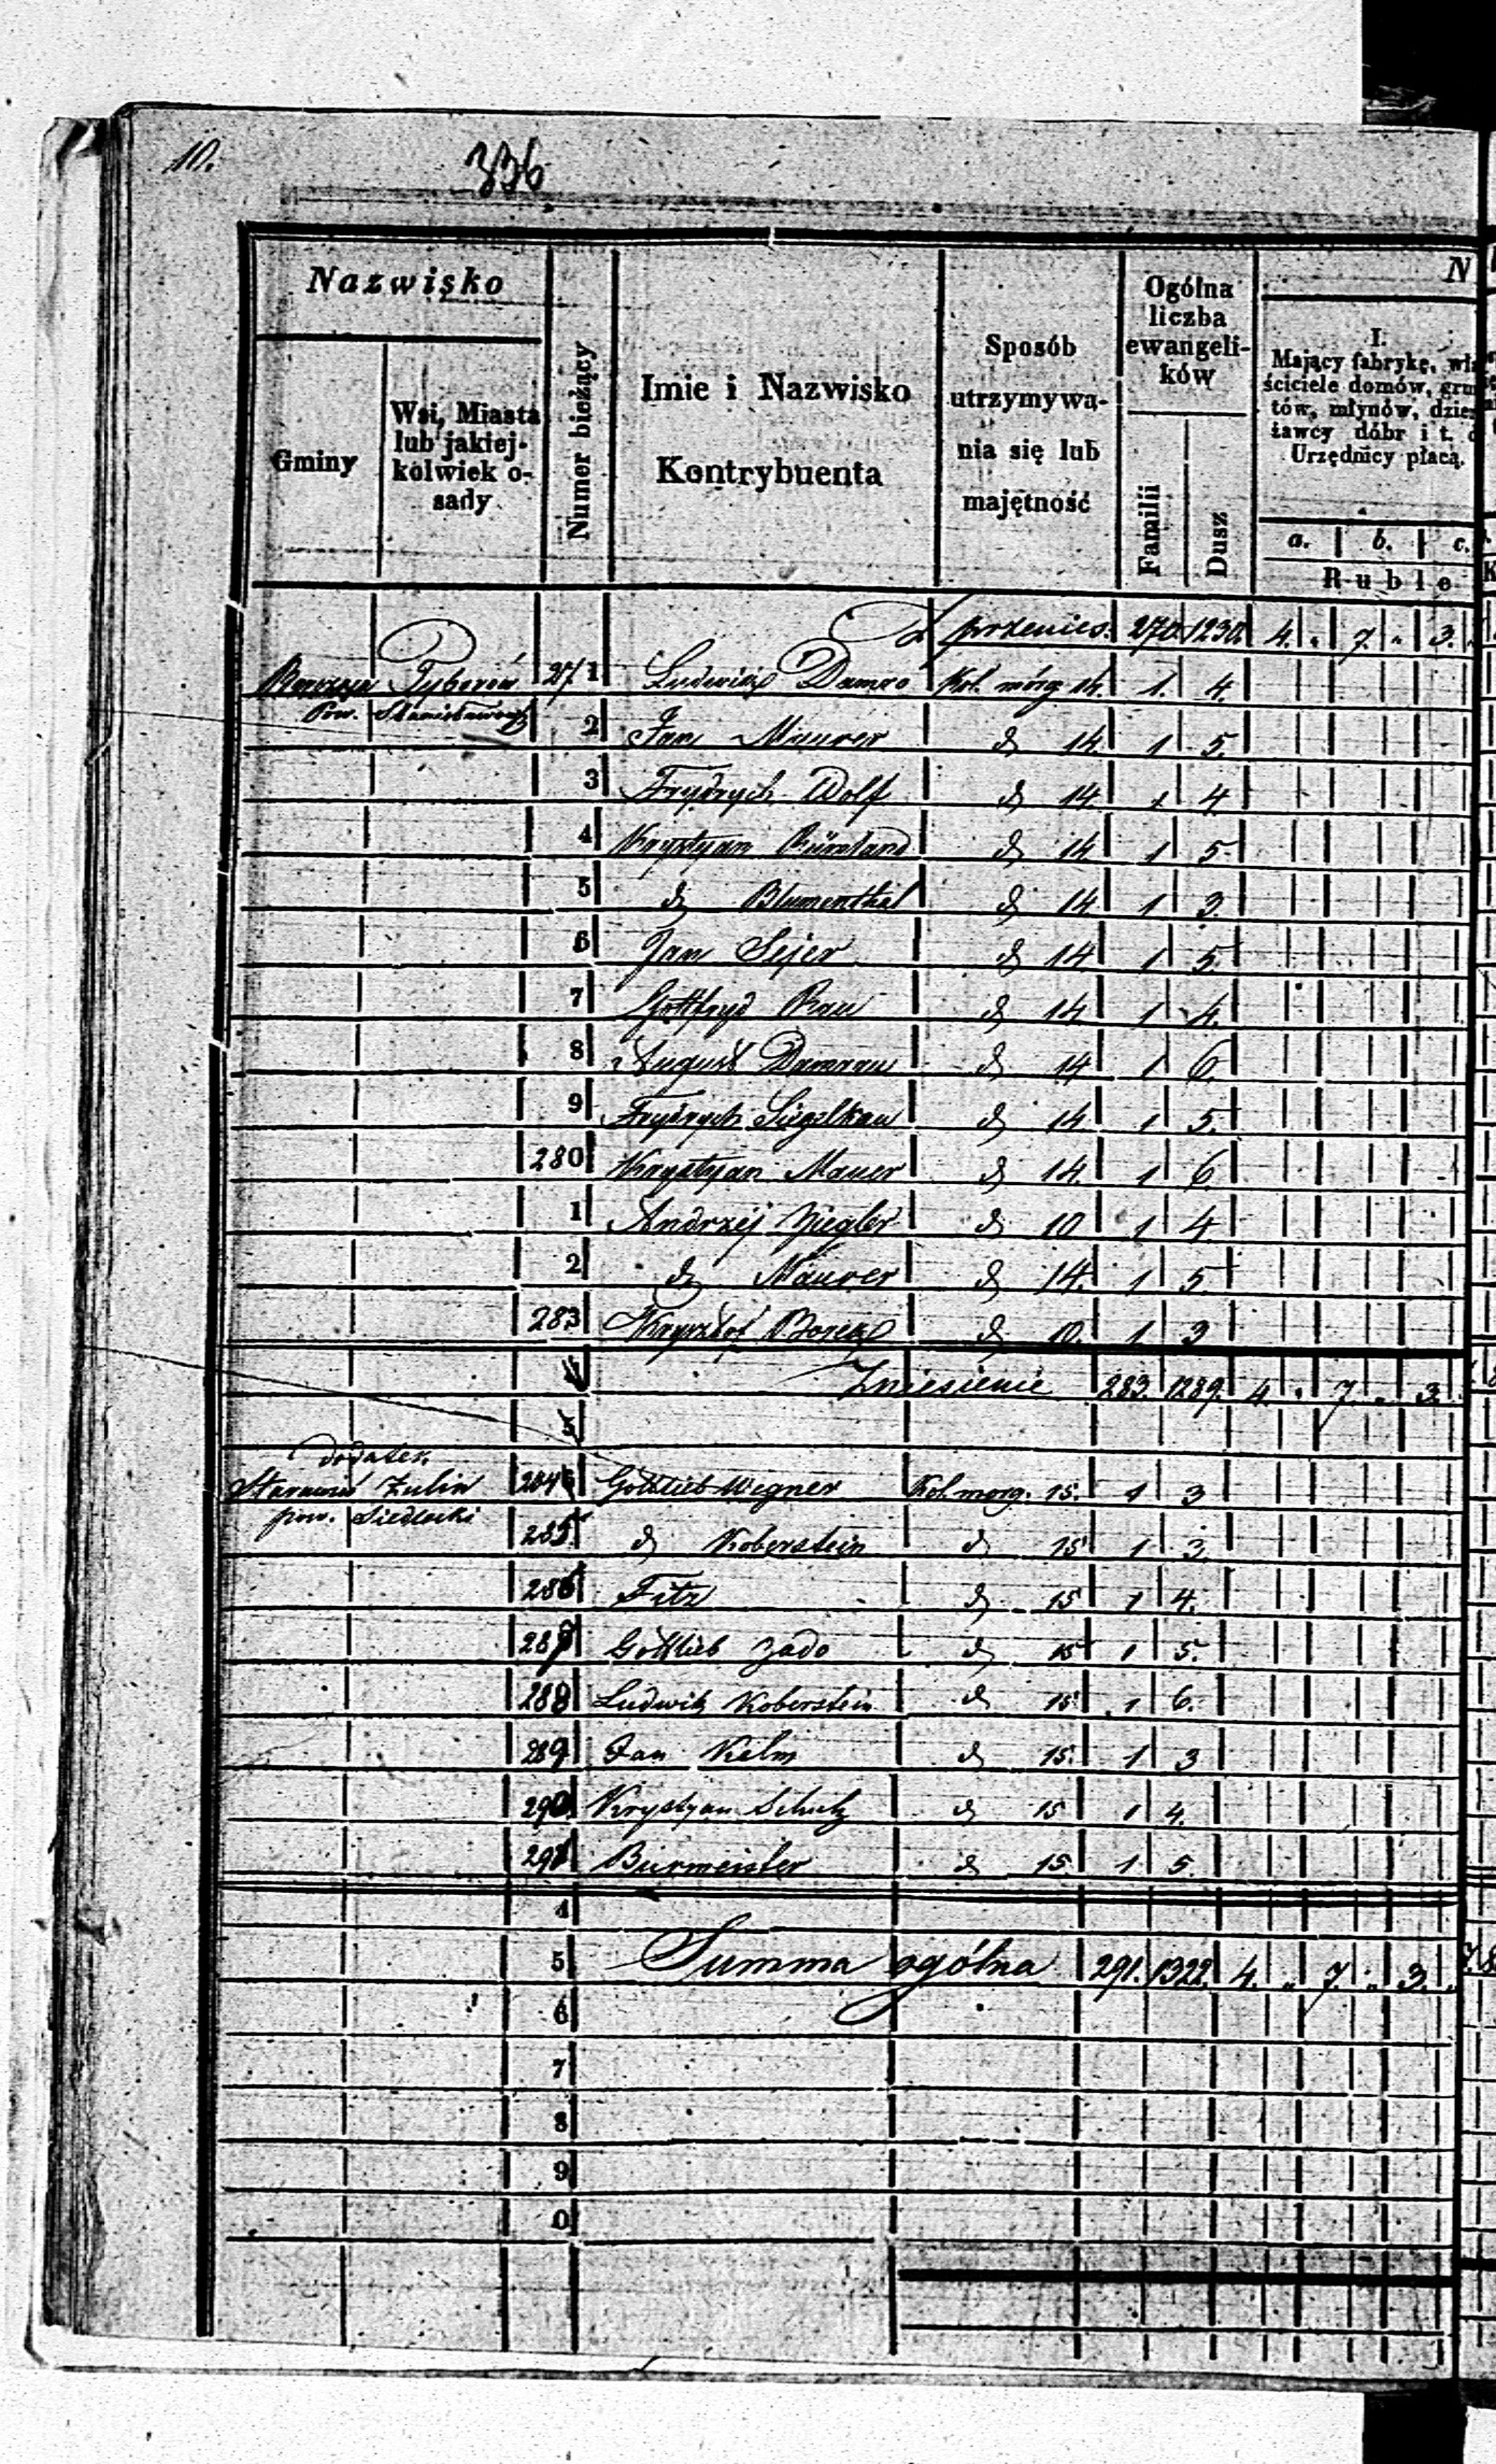 10.
336
Nazwisko
Gminy
Wsi, Miasta lub jakiej-kolwiek o-sady
Numer bieżący
Imie i Nazwisko
Kontrybuenta
Sposób utrzymywa-nia się lub majętność
Ogólna liczba ewangeli-ków
Familii
Dusz
N
I.
Mający fabrykę, wła
ściciele domów, grun
tów, młynów, dzier
żawcy dóbr i t. d
Urzędnicy płacą.
a. b. c.
Ruble
Z przenies. 270. 1230. 4. " 7. " 3.
Tyborów 271 Ludwik Damro Kol. mórg 14. 1. 4.
Pow. Stanisławowski 2 Jan Maurer d 14. 1 5.
3 Frydrych Wolf d 14. 1 4
4 Krystyan d 14 1 5.
5 d Blumenthal d 14 1 3.
6 Jan Sejer d 14. 1 5.
7 Gottfryd Rau d 14 1 4.
8 August Damrau d 14 1 6.
9 Frydrych d 14. 1 5.
280 Krystyan Mauer d 14. 1 6
1 Andrzéj Ziegler d 10 1 4
2 d Maurer d 14. 1 5
283 Krysztof d 10. 1 3
4 Zniesienie 283. 1289. 4. " 7. " 3.
5
dodatek
Żulin 284 Gottlieb Wegner Kol. morg. 15. 1 3
pow. Siedlecki 285 d Koberstein d 15 1 3.
286 Fitz d 15 1 4.
287 Gottlieb Zado d 15 1 5.
288 Ludwik Koberstein d 15 1 6.
289 Jan Kelm d 15. 1 3
290 Krystyan Schulz d 15 1 4.
291 Burmeister d 15 1 5.
4
5 Summa ogólna 291. 1322. 4. " 7. " 3.
6
7
8
9
0